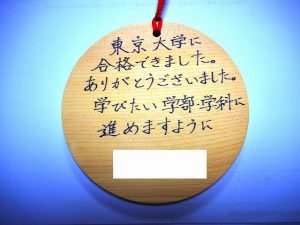 東京大学に
合格できました。
ありがとうございました。
学びたい学部・学科に
進めますように